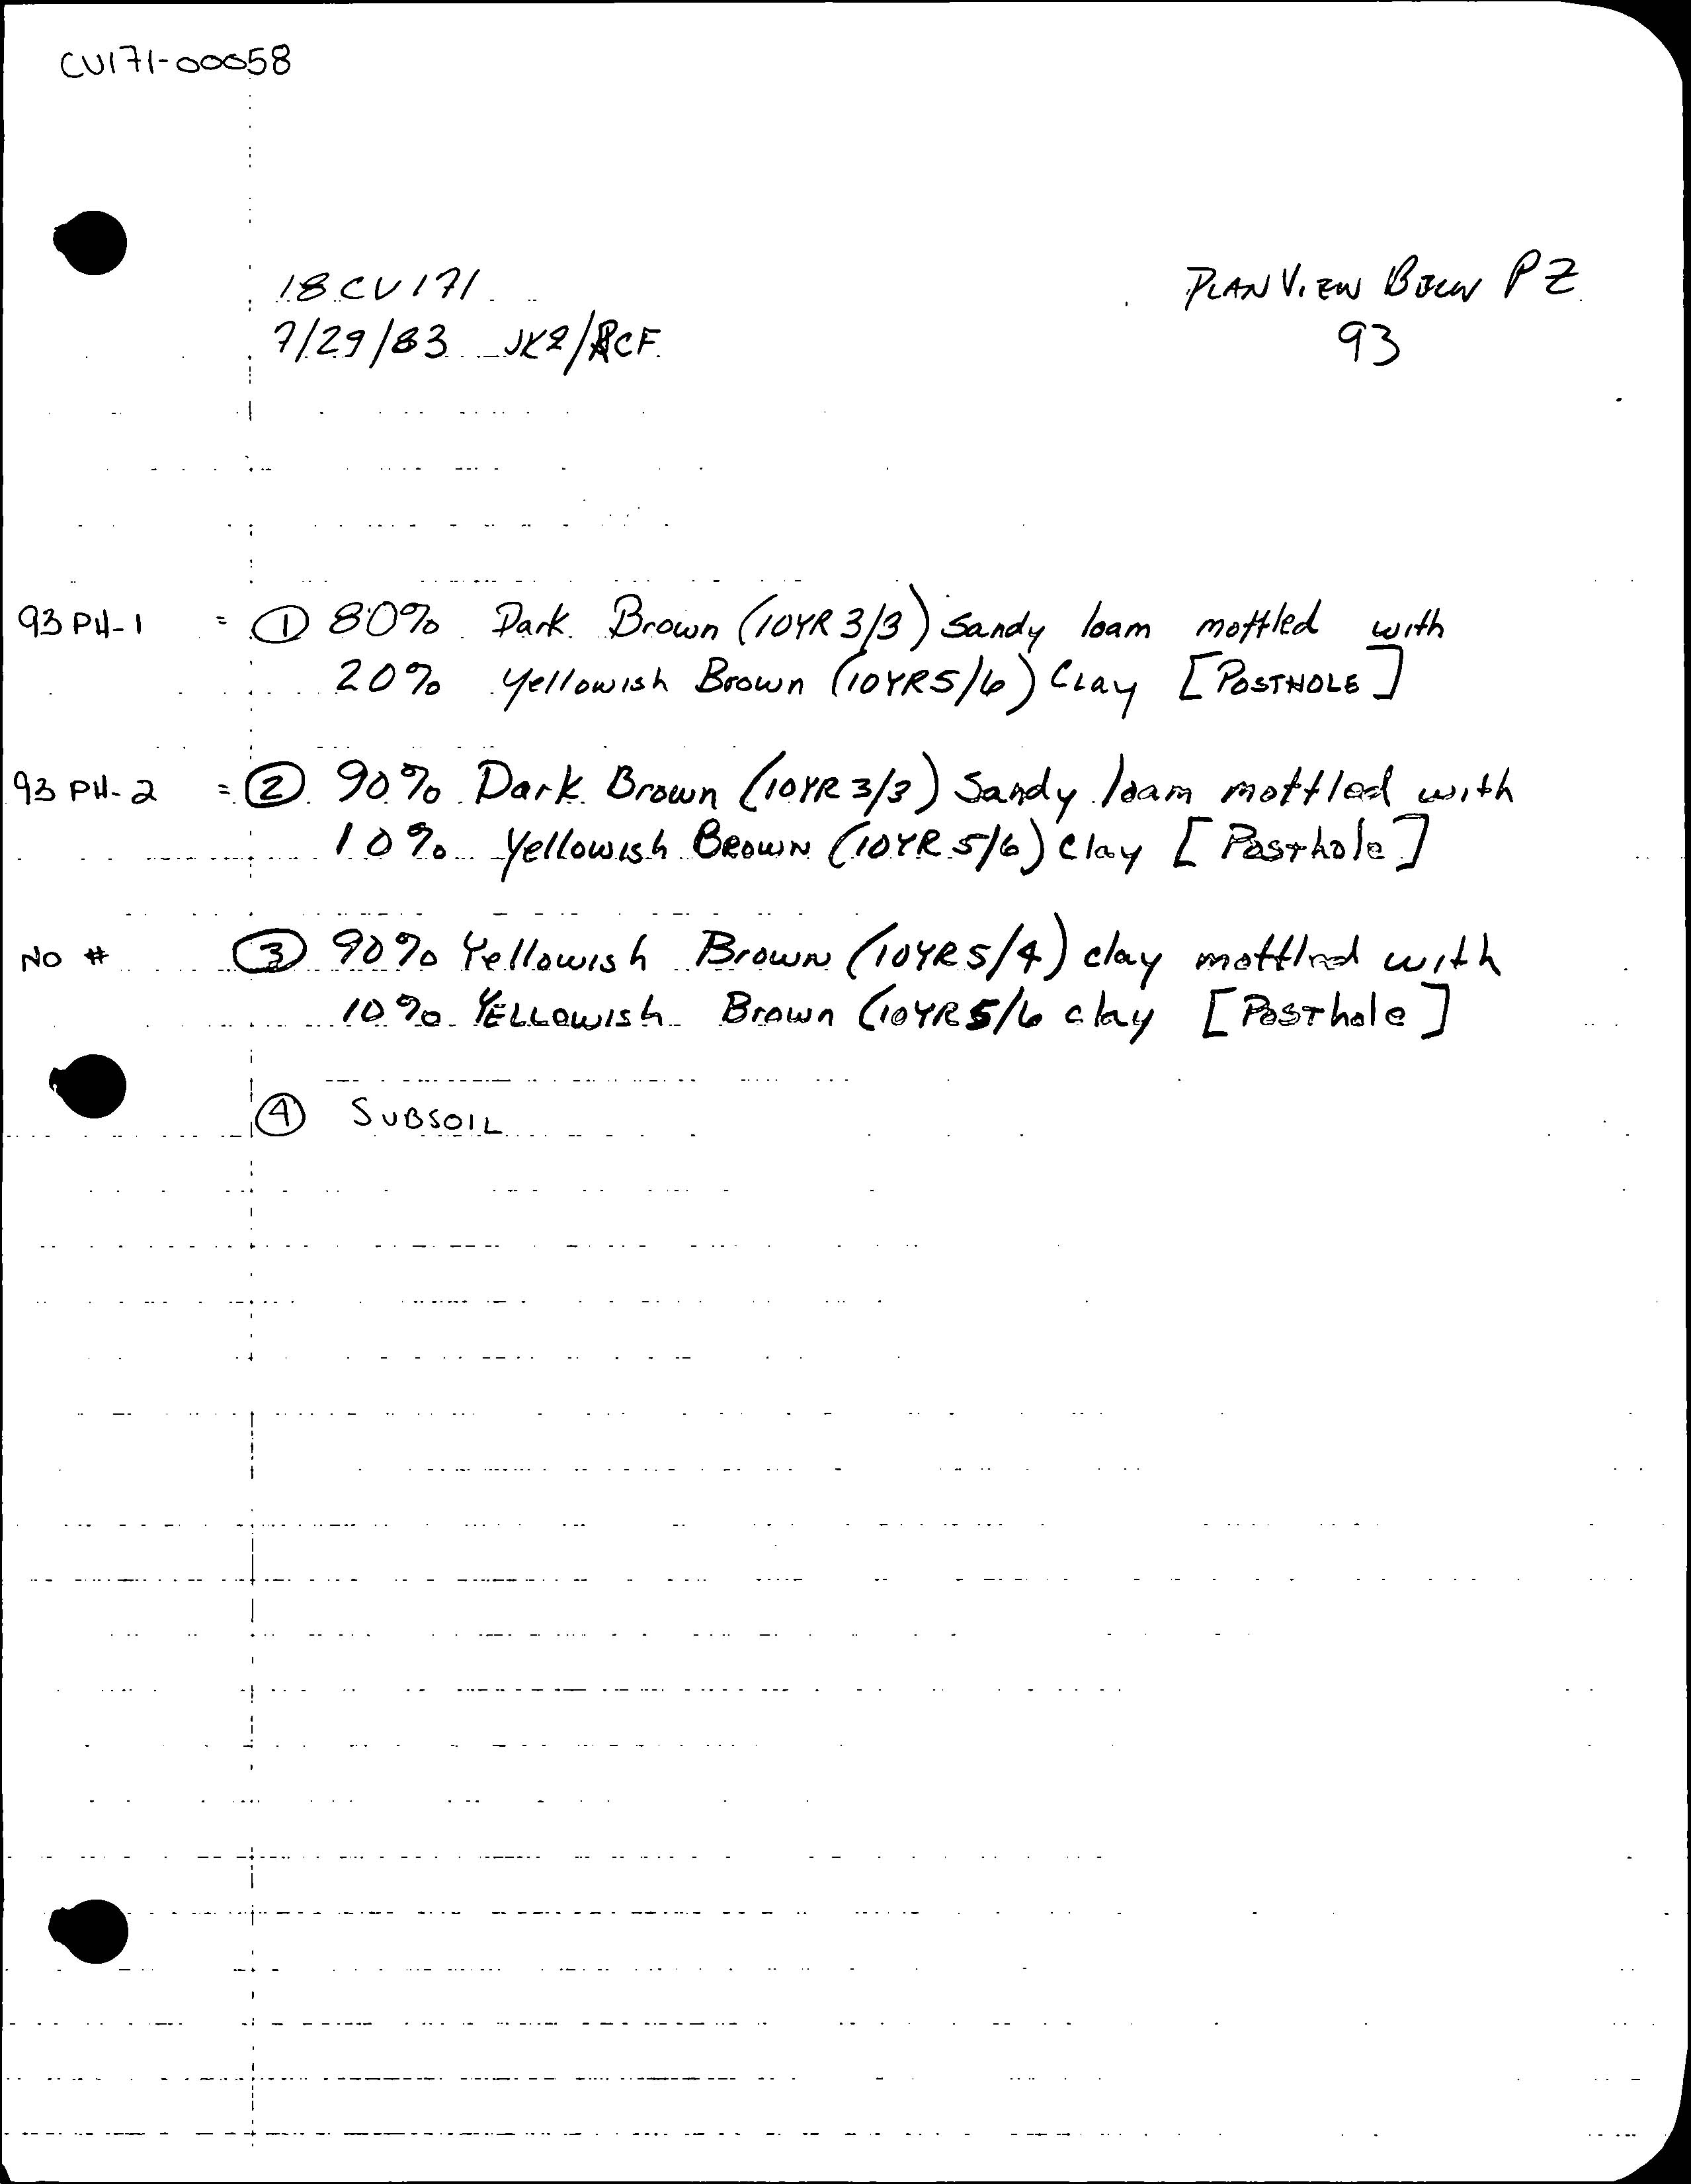 CU171-00058
18 CU 171
PLAN VIEW BELOW PZ
7/29/83 JK2/RCF
93
93 PH-1 = ① 80% Dark Brown (10YR 3/3) Sandy loam mottled with
20% Yellowish Brown (10YR5/6) Clay [POSTHOLE]
93 PH-2 = ② 90% Dark Brown (10YR 3/3) Sandy loam mottled with
10% Yellowish BROWN (10YR 5/6) Clay [Posthole]
NO # ③ 90% Yellowish Brown (10YR5/4) clay mottled with
10% YELLOWISh Brown (10YR5/6 clay [PosThole]
④ SUBSOIL